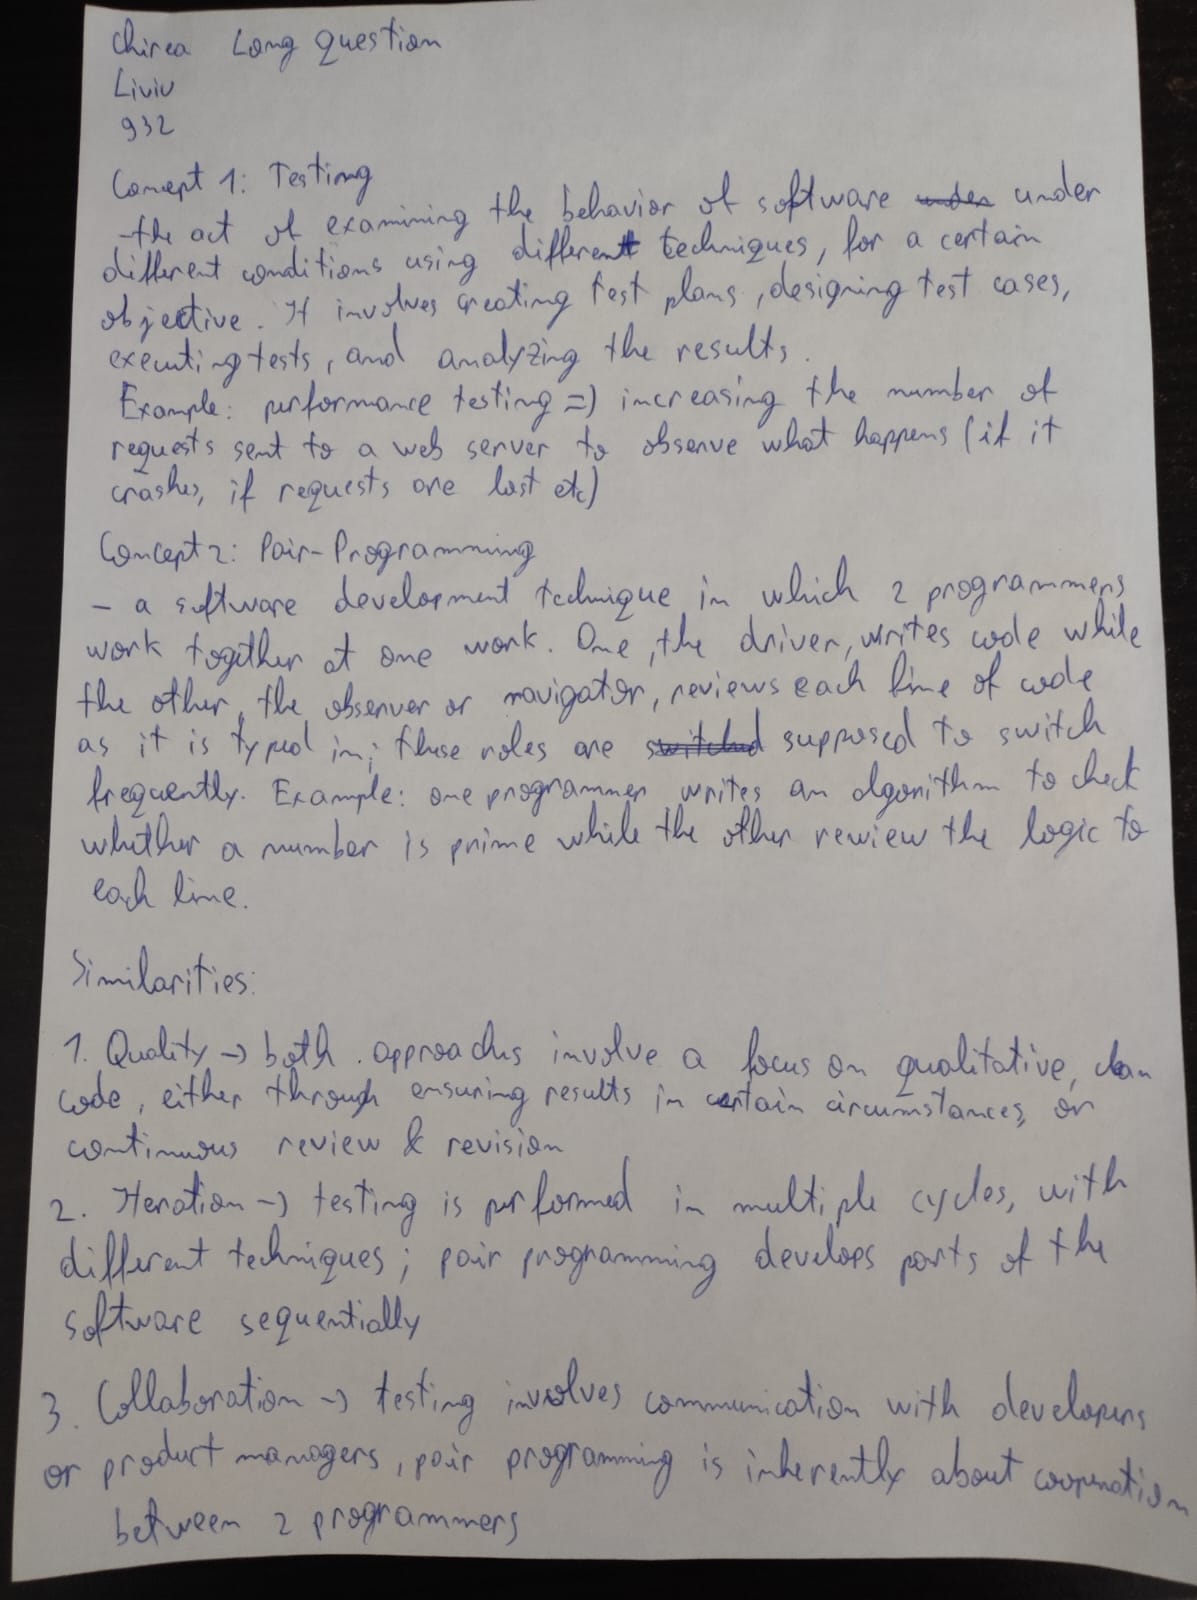 Chirea Long Question
Liviu
932
Concept 1: Testing
-the act of examining the behavior of software under under
different conditions using different techniques, for a certain
objective. It involves creating test plans, designing test cases,
executing tests, and analyzing the results.
Example: performance testing => increasing the number of
requests sent to a web server to observe what happens (if it
crashes, if requests are lost etc)
Concept 2: Pair-Programming
- a software development technique in which 2 programmers
work together at one work. One, the driver, writes code while
the other, the observer or navigator, reviews each line of code
as it is typed in; these roles are switched supposed to switch
frequently. Example: one programmer writes an algorithm to check
whether a number is prime while the other review the logic to
each line.
Similarities:
1. Quality -> both approaches involve a focus on qualitative, clean
code, either through ensuring results in certain circumstances, or
continuous review & revision
2. Iteration -> testing is performed in multiple cycles, with
different techniques; pair programming develops parts of the
software sequentially
3. Collaboration -> testing involves communication with developers
or product managers, pair programming is inherently about cooperation
between 2 programmers